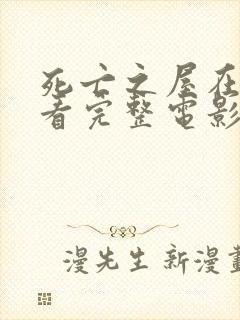 死亡之屋在
看完整電影
漫先生新漫畫